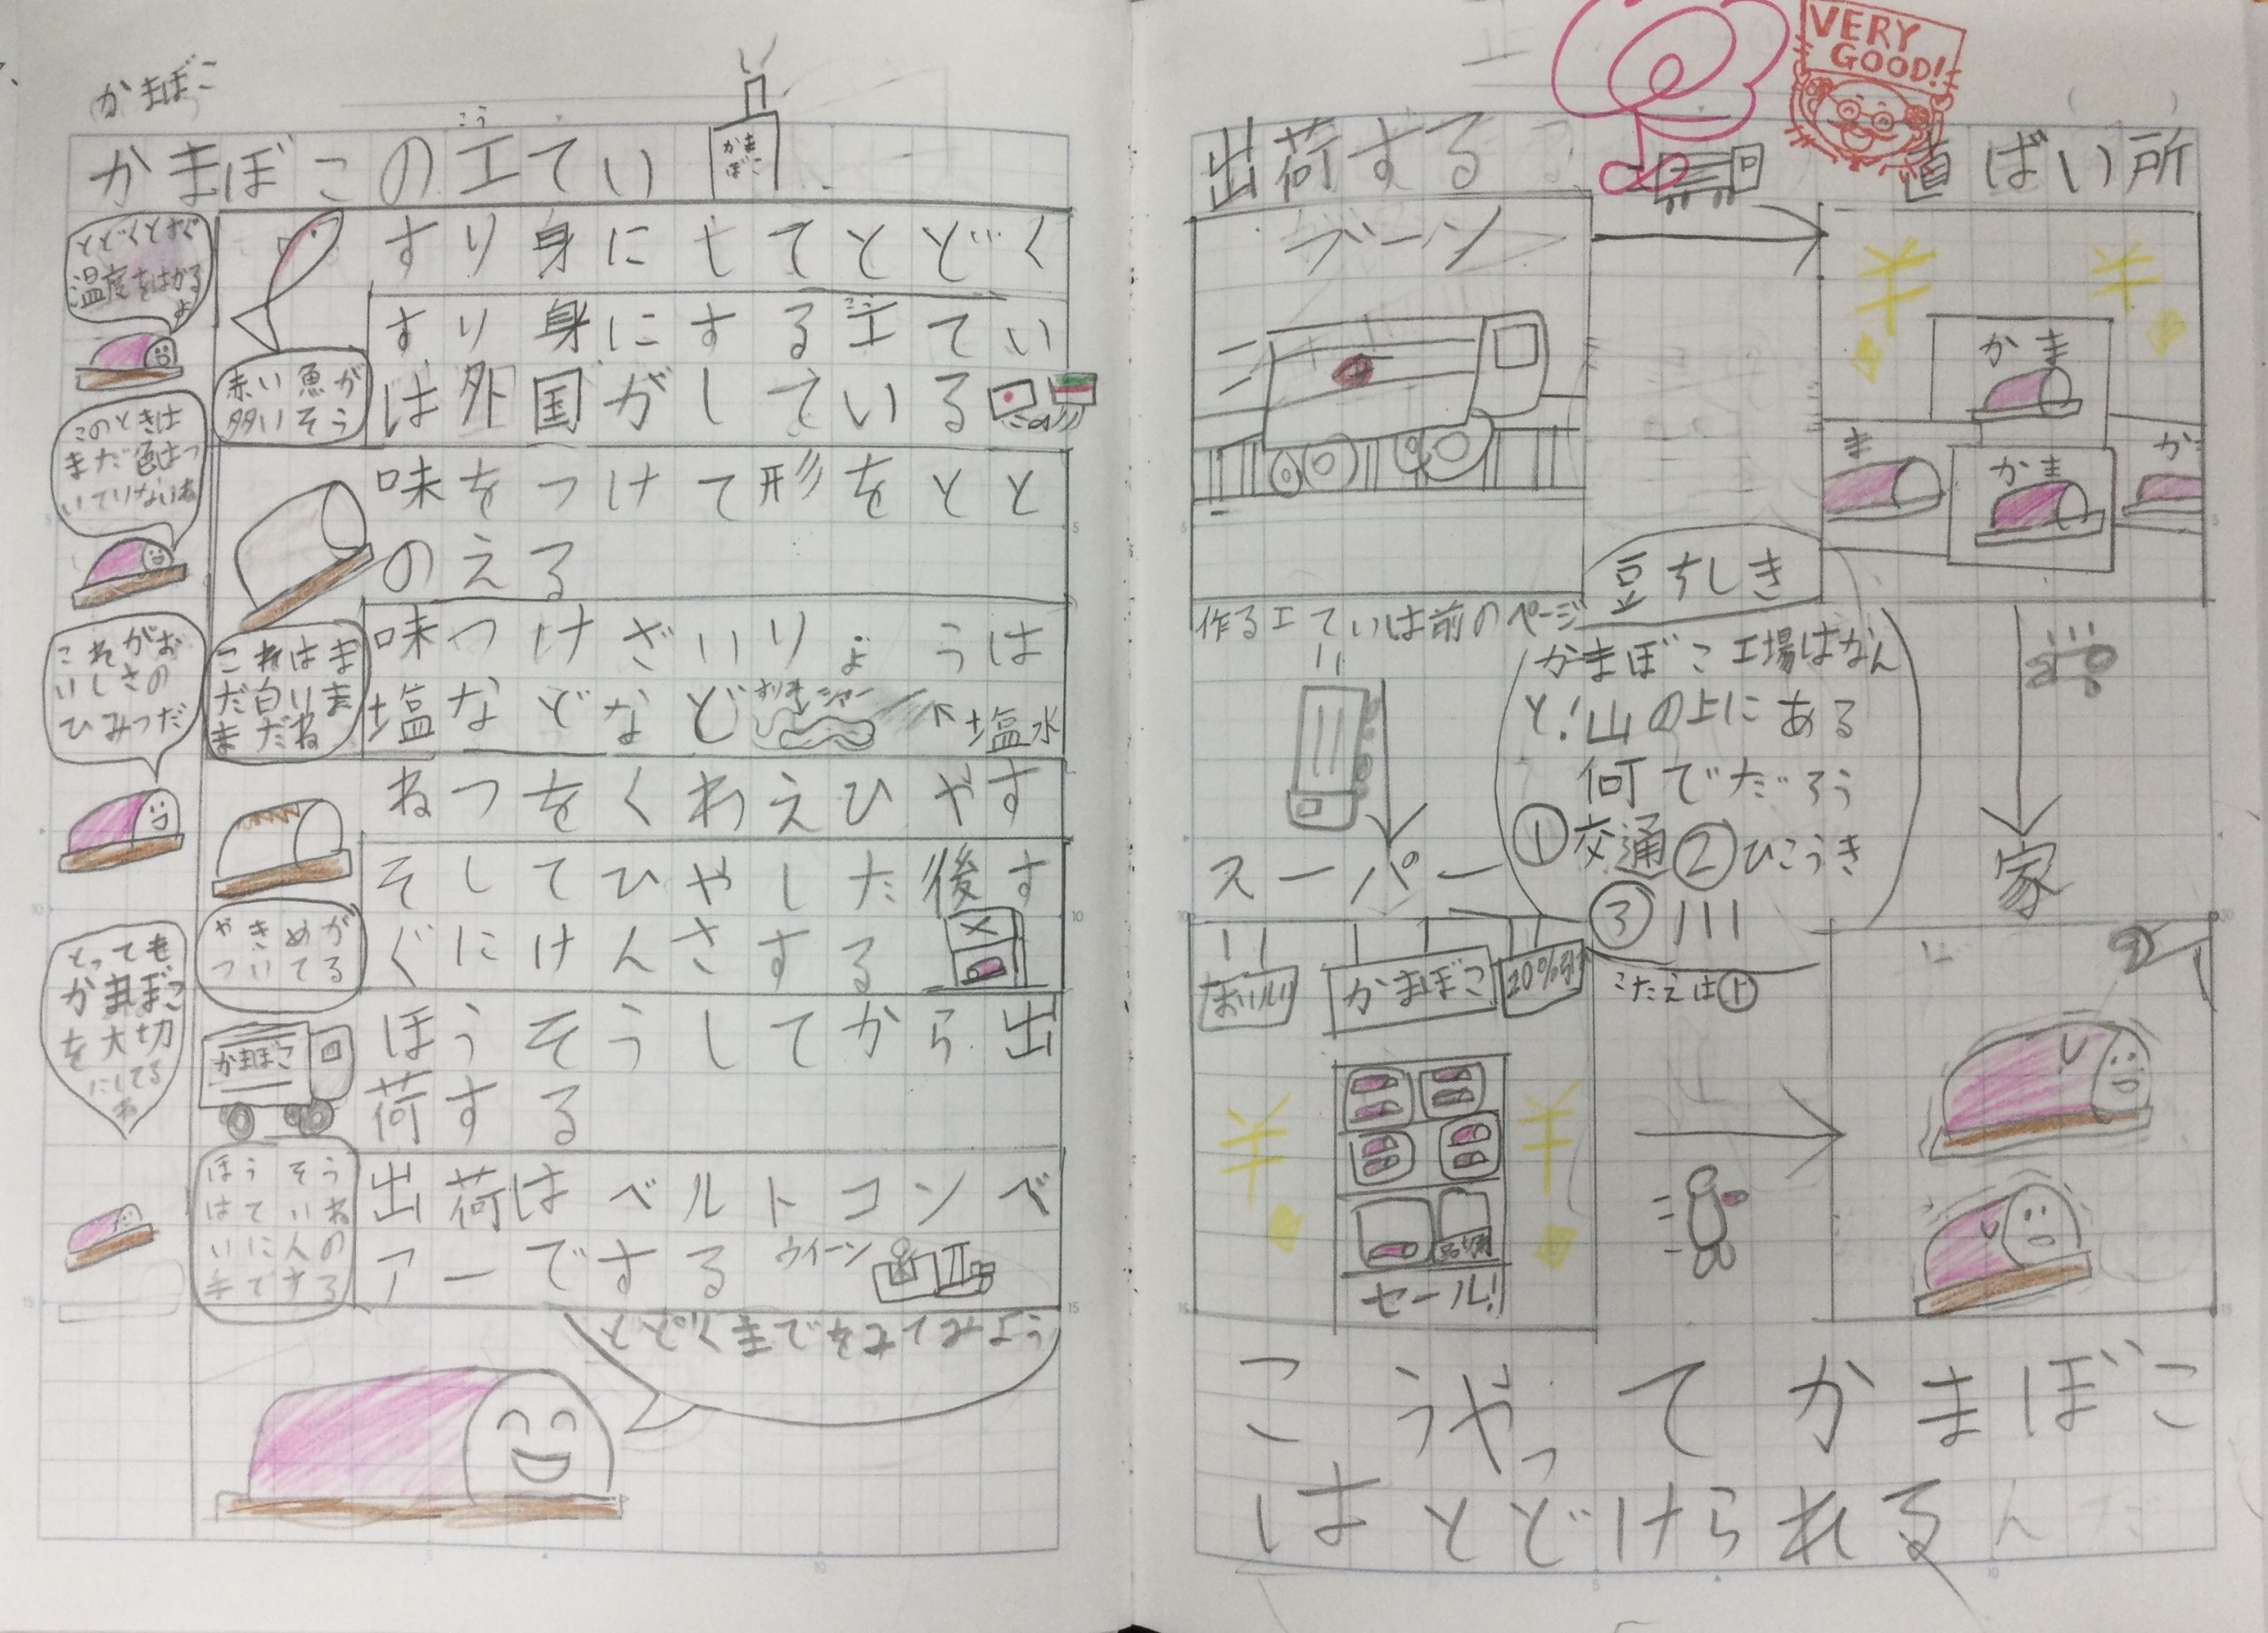 かまぼこ
かまぼこの工てい
こう
かま
ぼこ
とどくとすぐ
温度をはかる
よ
すり身にしてとどく
すり身にする工てい
こう
は外国がしている
赤い魚が
多いそう
このときは
まだ色はつ
いてりないね
味をつけて形をとと
のえる
これはま
だ白いま
まだね
これがお
いしさの
ひみつだ
味つけざいりょうは
塩などなど
塩水
ねつをくわえひやす
そしてひやした後す
ぐにけんさする
やきめが
ついてる
とっても
かまぼこ
を大切
にしてる
ね
ほうそうしてから出
荷する
かまぼこ
ほうそう
はていね
いに人の
手でする
出荷はベルトコンベ
アーでする
ウイーン
とどくまでをみてみよう
VERY
GOOD!
出荷する
直ばい所
ブーン
¥
¥
かま
ま
かま
か
作る工ていは前のページ
豆ちしき
かまぼこ工場はなん
と!山の上にある
何でだろう
①交通②ひこうき
③川
こたえは①
スーパー
家
おいしい
かまぼこ
20%引
¥
¥
セール!
こうやってかまぼこ
はとどけられるんだ